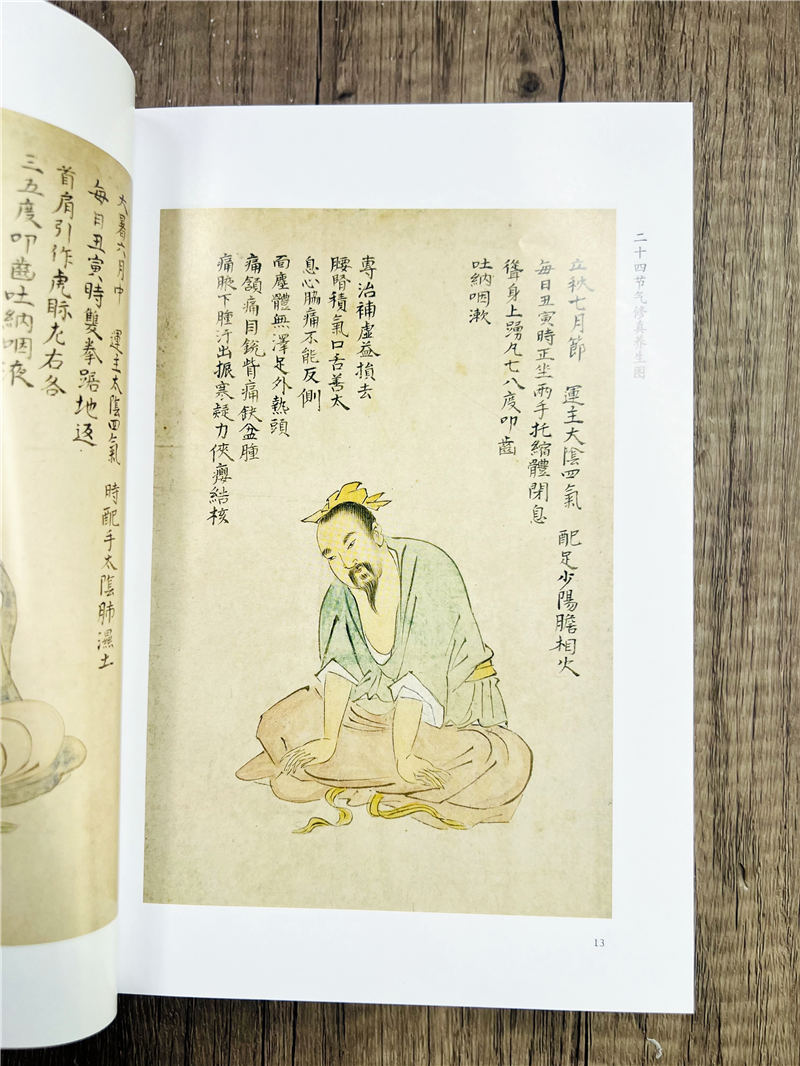 二十四节气修真养生图
立秋七月節 運主大陰四氣 配足少陽膽相火
每日丑寅時正坐兩手托縮體閉息
聳身上踴凡七八度叩齒
吐納咽漱
專治補虛益損去
腰腎積氣口舌善太
息心脇痛不能反側
面塵體無澤足外熱頭
痛頷痛目銳眥痛缺盆腫
痛腋下腫汗出振寒疑力俠癭結核
13
大暑六月中 運主太陰四氣 時配手太陰肺濕土
每日丑寅時雙拳踞地返
首肩引作虎眎左右各
三五度叩齒吐納咽液